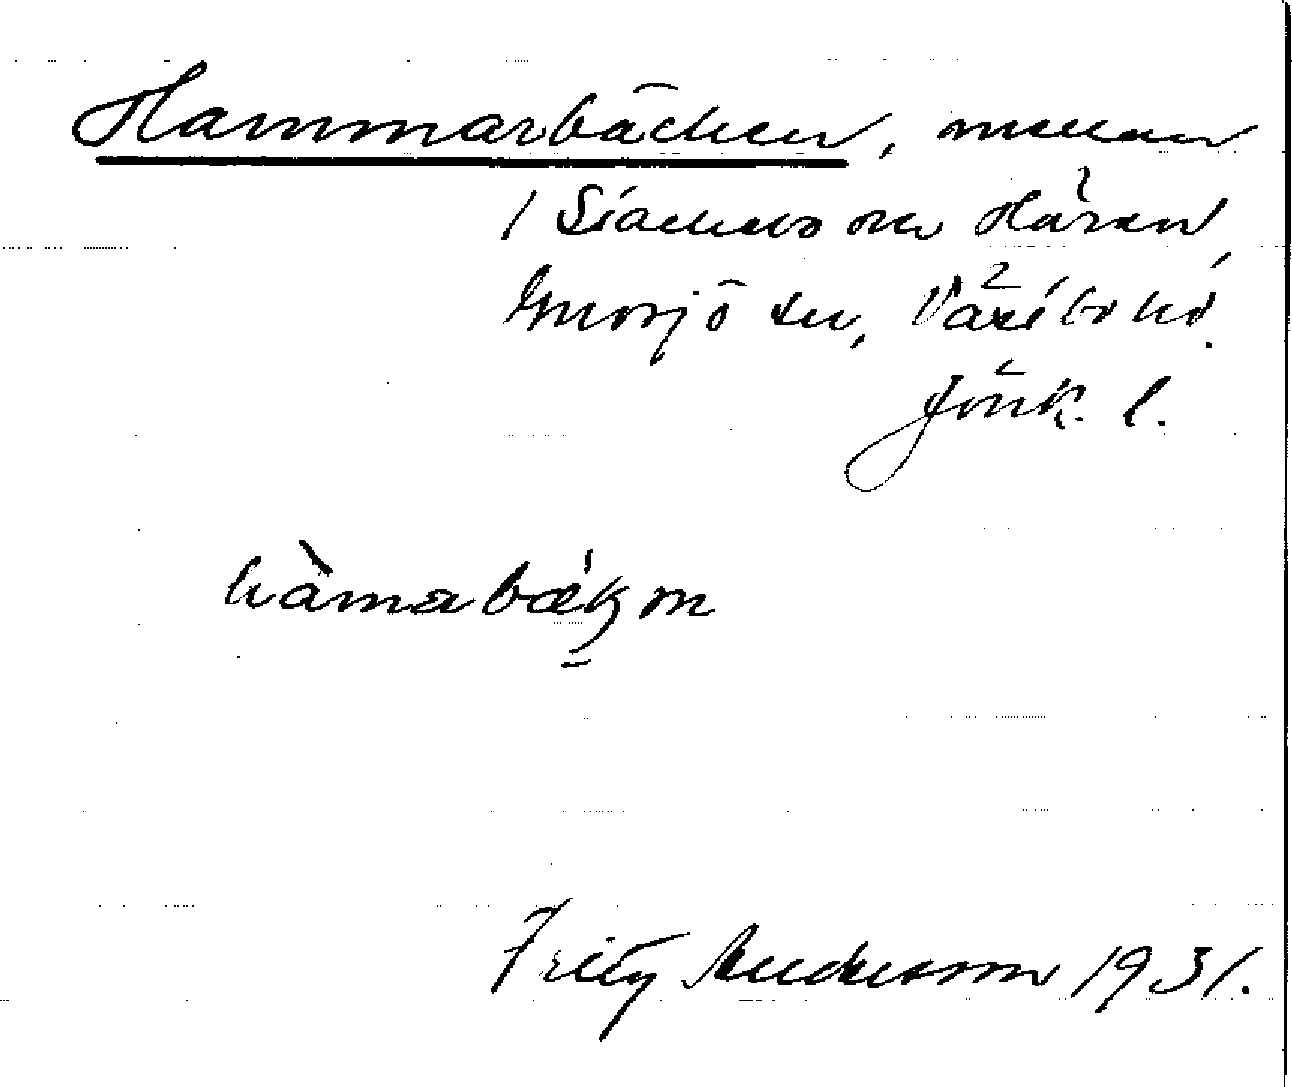 Hammarbäcken, mellan
Stacken och Hären
Gnosjö sn, Västbo hd.
Jönk. l.
hàmabæ̀kən
Fritz Andersson 1931.